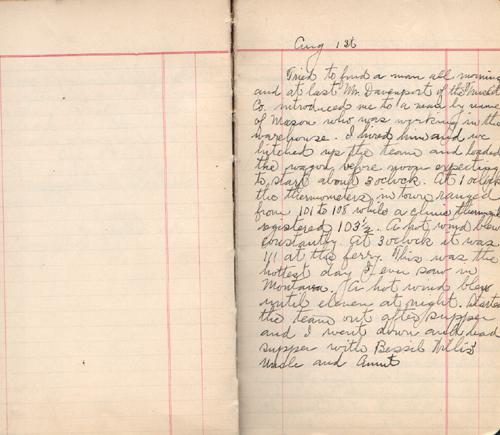 Aug 1st
Tried to find a man all morning
and at last Mr. Davenport of the
Co. introduced me to a man by name
of Mason who was working in the
warehouse. I hired him and we
hitched up the team and loaded
the wagon before noon expecting
to start about 3 oclock. At 1 oclock
the thermometers in town ranged
from 101 to 108 while a
registered 103½. A hot wind blew
constantly. At 3 oclock it was
111 at the ferry. This was the
hottest day I ever saw in
Montana. A hot wind blew
until eleven at night. Started
the team out after supper
and I went down and had
supper with Bessie
Uncle and Aunt